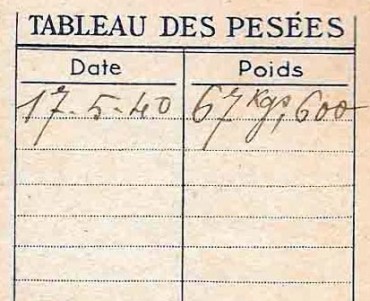 TABLEAU DES PESÉES
Date Poids
17-5-40 67 Kgs,600